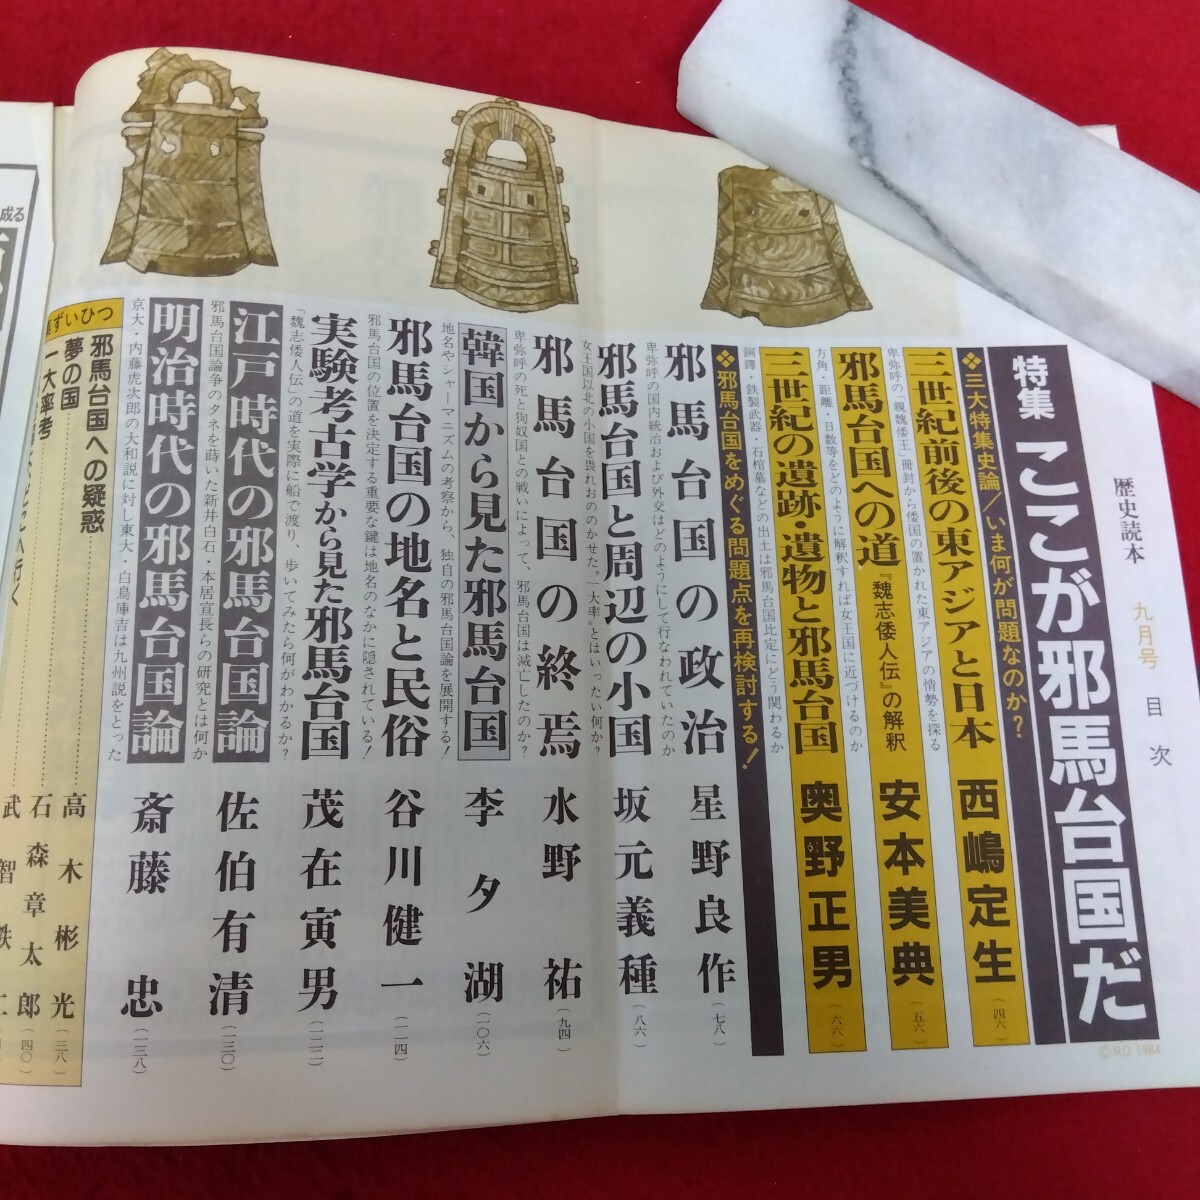 歴史読本 九月号 目次
特集 ここが邪馬台国だ
❖三大特集史論/いま何が問題なのか?
三世紀前後の東アジアと日本 西嶋定生(四六)
卑弥呼の「親魏倭王」冊封から倭国の置かれた東アジアの情勢を探る
邪馬台国への道『魏志倭人伝』の解釈 安本美典(五六)
方角・距離・日数等をどのように解釈すれば女王国に近づけるのか
三世紀の遺跡・遺物と邪馬台国 奥野正男(六六)
銅鐸・鉄製武器・石棺墓などの出土は邪馬台国比定にどう関わるか
❖邪馬台国をめぐる問題点を再検討する!
邪馬台国の政治 星野良作(七八)
卑弥呼の国内統治および外交はどのようにして行なわれていたのか
邪馬台国と周辺の小国 坂元義種(八六)
女王国以北の小国を畏れおののかせた〝一大率〟とはいったい何か?
邪馬台国の終焉 水野祐(九四)
卑弥呼の死と狗奴国との戦いによって、邪馬台国は滅亡したのか?
韓国から見た邪馬台国 李夕湖(一〇六)
地名やシャーマニズムの考察から、独自の邪馬台国論を展開する!
邪馬台国の地名と民俗 谷川健一(一一四)
邪馬台国の位置を決定する重要な鍵は地名のなかに隠されている!
実験考古学から見た邪馬台国 茂在寅男(一二二)
「魏志倭人伝」の道を実際に船で渡り、歩いてみたら何がわかるか?
江戸時代の邪馬台国論 佐伯有清(一三〇)
邪馬台国論争のタネを蒔いた新井白石・本居宣長らの研究とは何か
明治時代の邪馬台国論 斎藤忠(一三八)
京大・内藤虎次郎の大和説に対し東大・白鳥庫吉は九州説をとった
ずいひつ
邪馬台国への疑惑 高木彬光(三八)
夢の国 石森章太郎(四〇)
一大率考 武智鉄二
へ行く
成る
©RD 1984